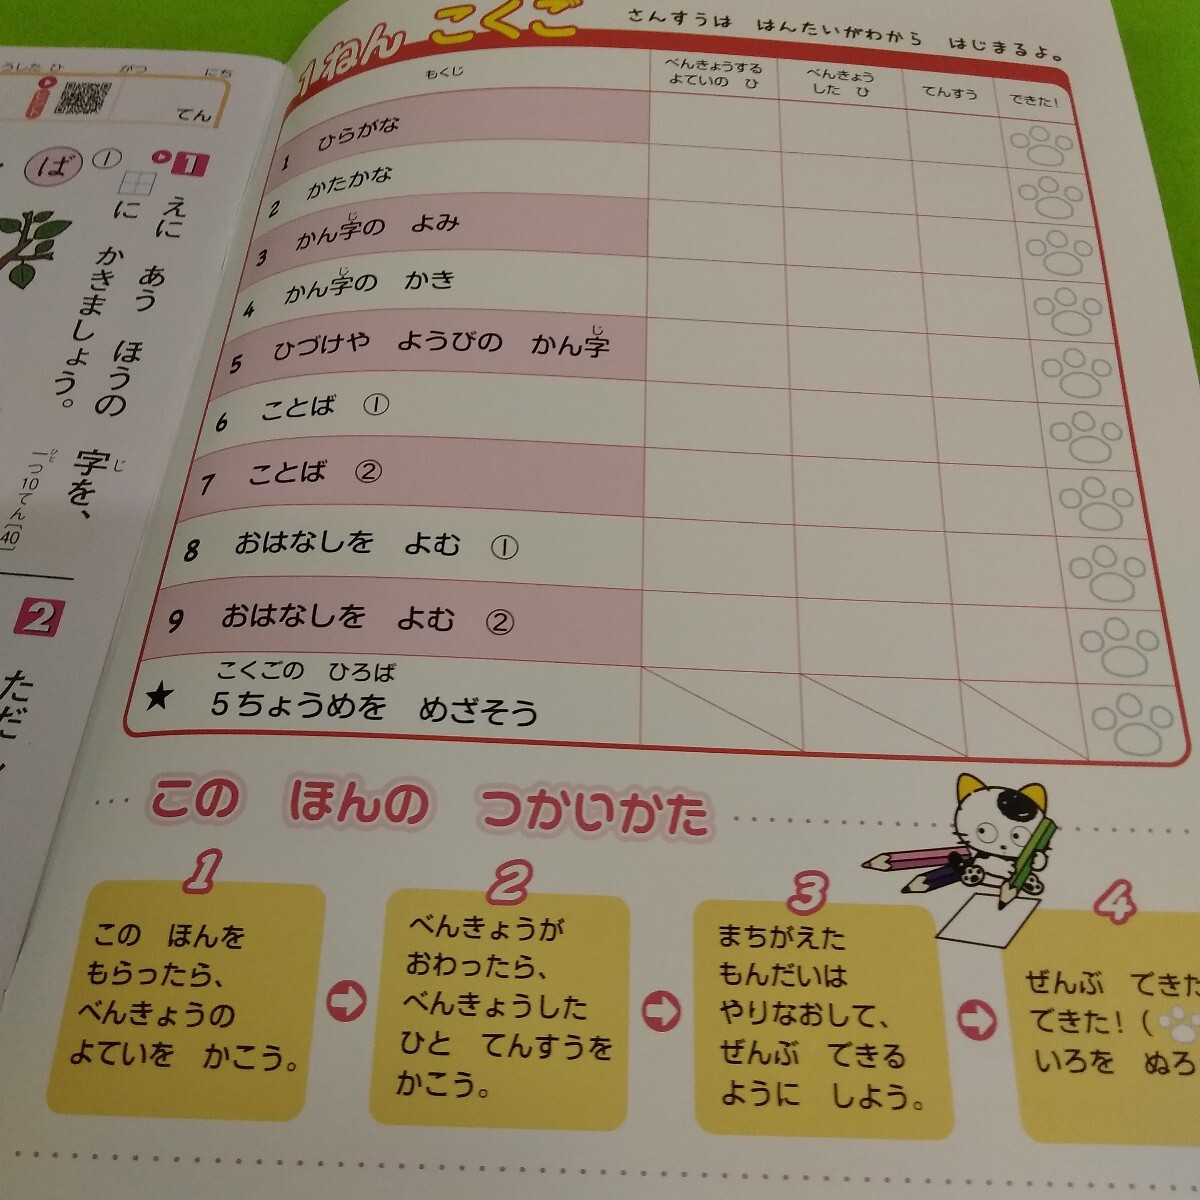 1ねん こくご
さんすうは　はんたいがわから　はじまるよ。
もくじ
べんきょうする
よていの　ひ
べんきょう
した　ひ
てんすう
できた！
1 ひらがな
2 かたかな
3 かん字の　よみ
じ
4 かん字の　かき
じ
5 ひづけや　ようびの　かん字
じ
6 ことば　①
7 ことば　②
8 おはなしを　よむ　①
9 おはなしを　よむ　②
こくごの　ひろば
★ 5ちょうめを　めざそう
この　ほんの　つかいかた
1
この　ほんを
もらったら、
べんきょうの
よていを　かこう。
2
べんきょうが
おわったら、
べんきょうした
ひと　てんすうを
かこう。
3
まちがえた
もんだいは
やりなおして、
ぜんぶ　できる
ように　しよう。
4
ぜんぶ　できた
できた！（
いろを　ぬろ
うした ひ
がつ
にち
てん
1
えに　あう　ほうの　字を、
じ
に　かきましょう。
一つ10てん〔40
ひと
①
ば
2
ただ